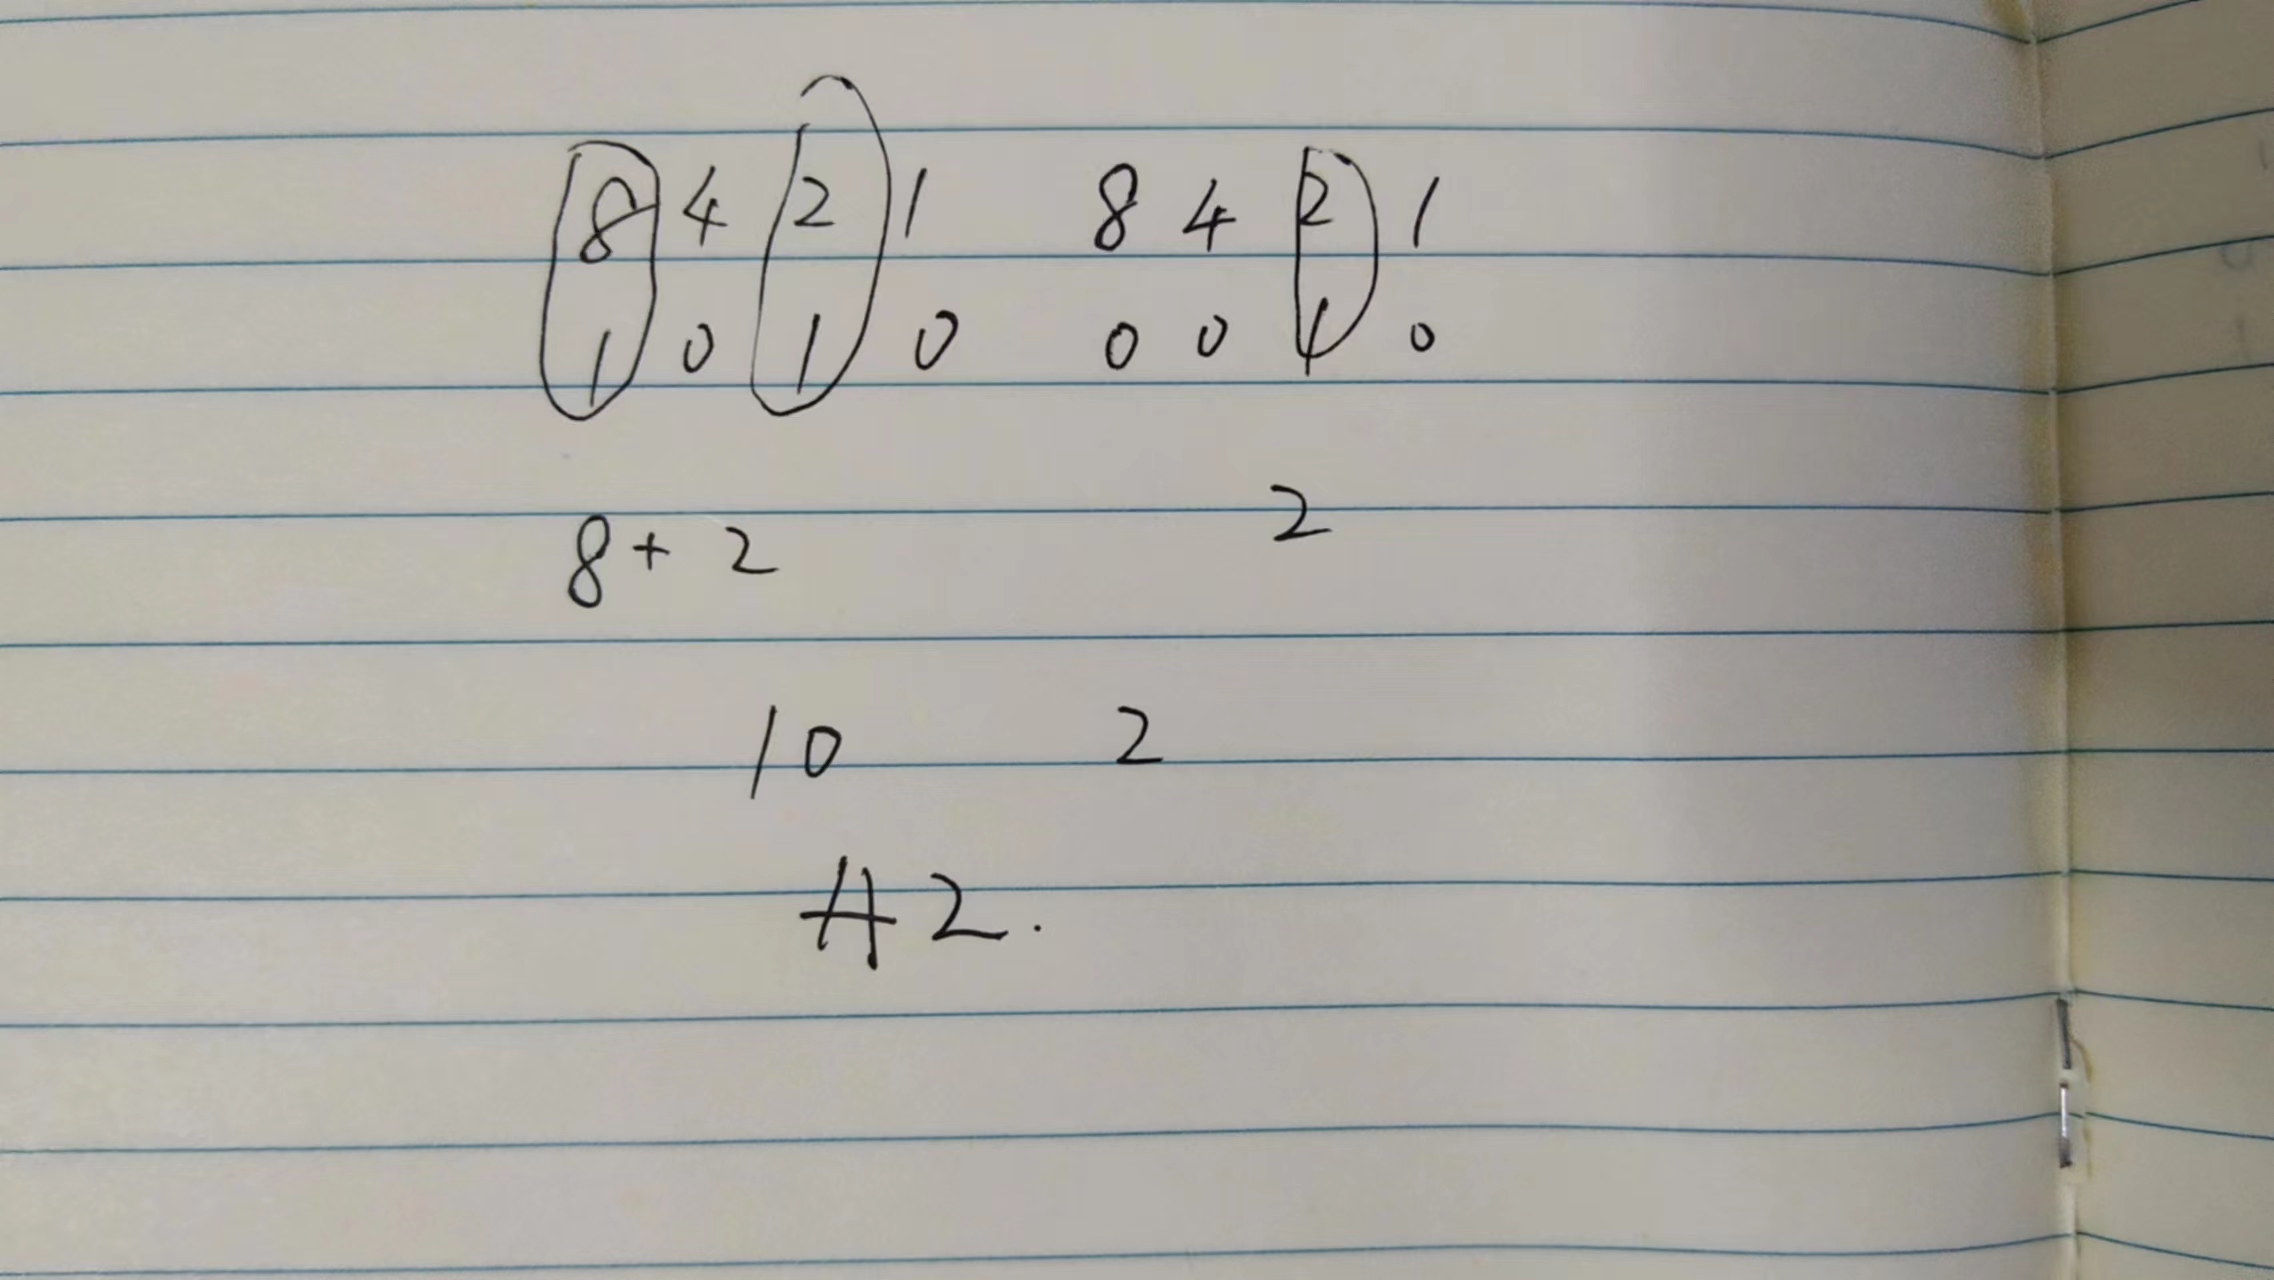 8 4 2 1 8 4 2 1
1 0 1 0 0 0 1 0
8 + 2 2
10 2
A2.